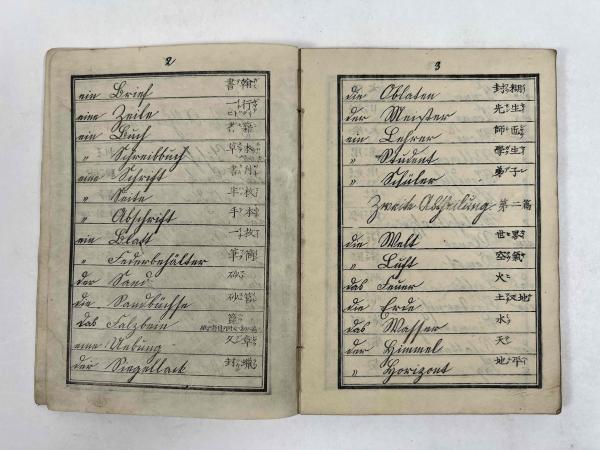 2
ein Brief 書翰
eine Zeile 一行
ein Buch 書籍
" Schreibbuch 草本
eine Schrift 書
" Seite 半枚
" Abschrift 手本
ein Blatt 一枚
" Federbehälter 筆筒
der Sand 砂
die Sandbüchse 砂筥
das Falzbein
eine Uebung 文章
der Siegellack 封蠟
3
die Oblaten 封糊
der Meister 先生
ein Lehrer 師匠
" Student 學生
" Schüler 弟子
Zweite Abtheilung 第二篇
die Welt 世界
" Luft 空氣
das Feuer 火
die Erde 土又地
das Wasser 水
der Himmel 天
" Horizont 地平